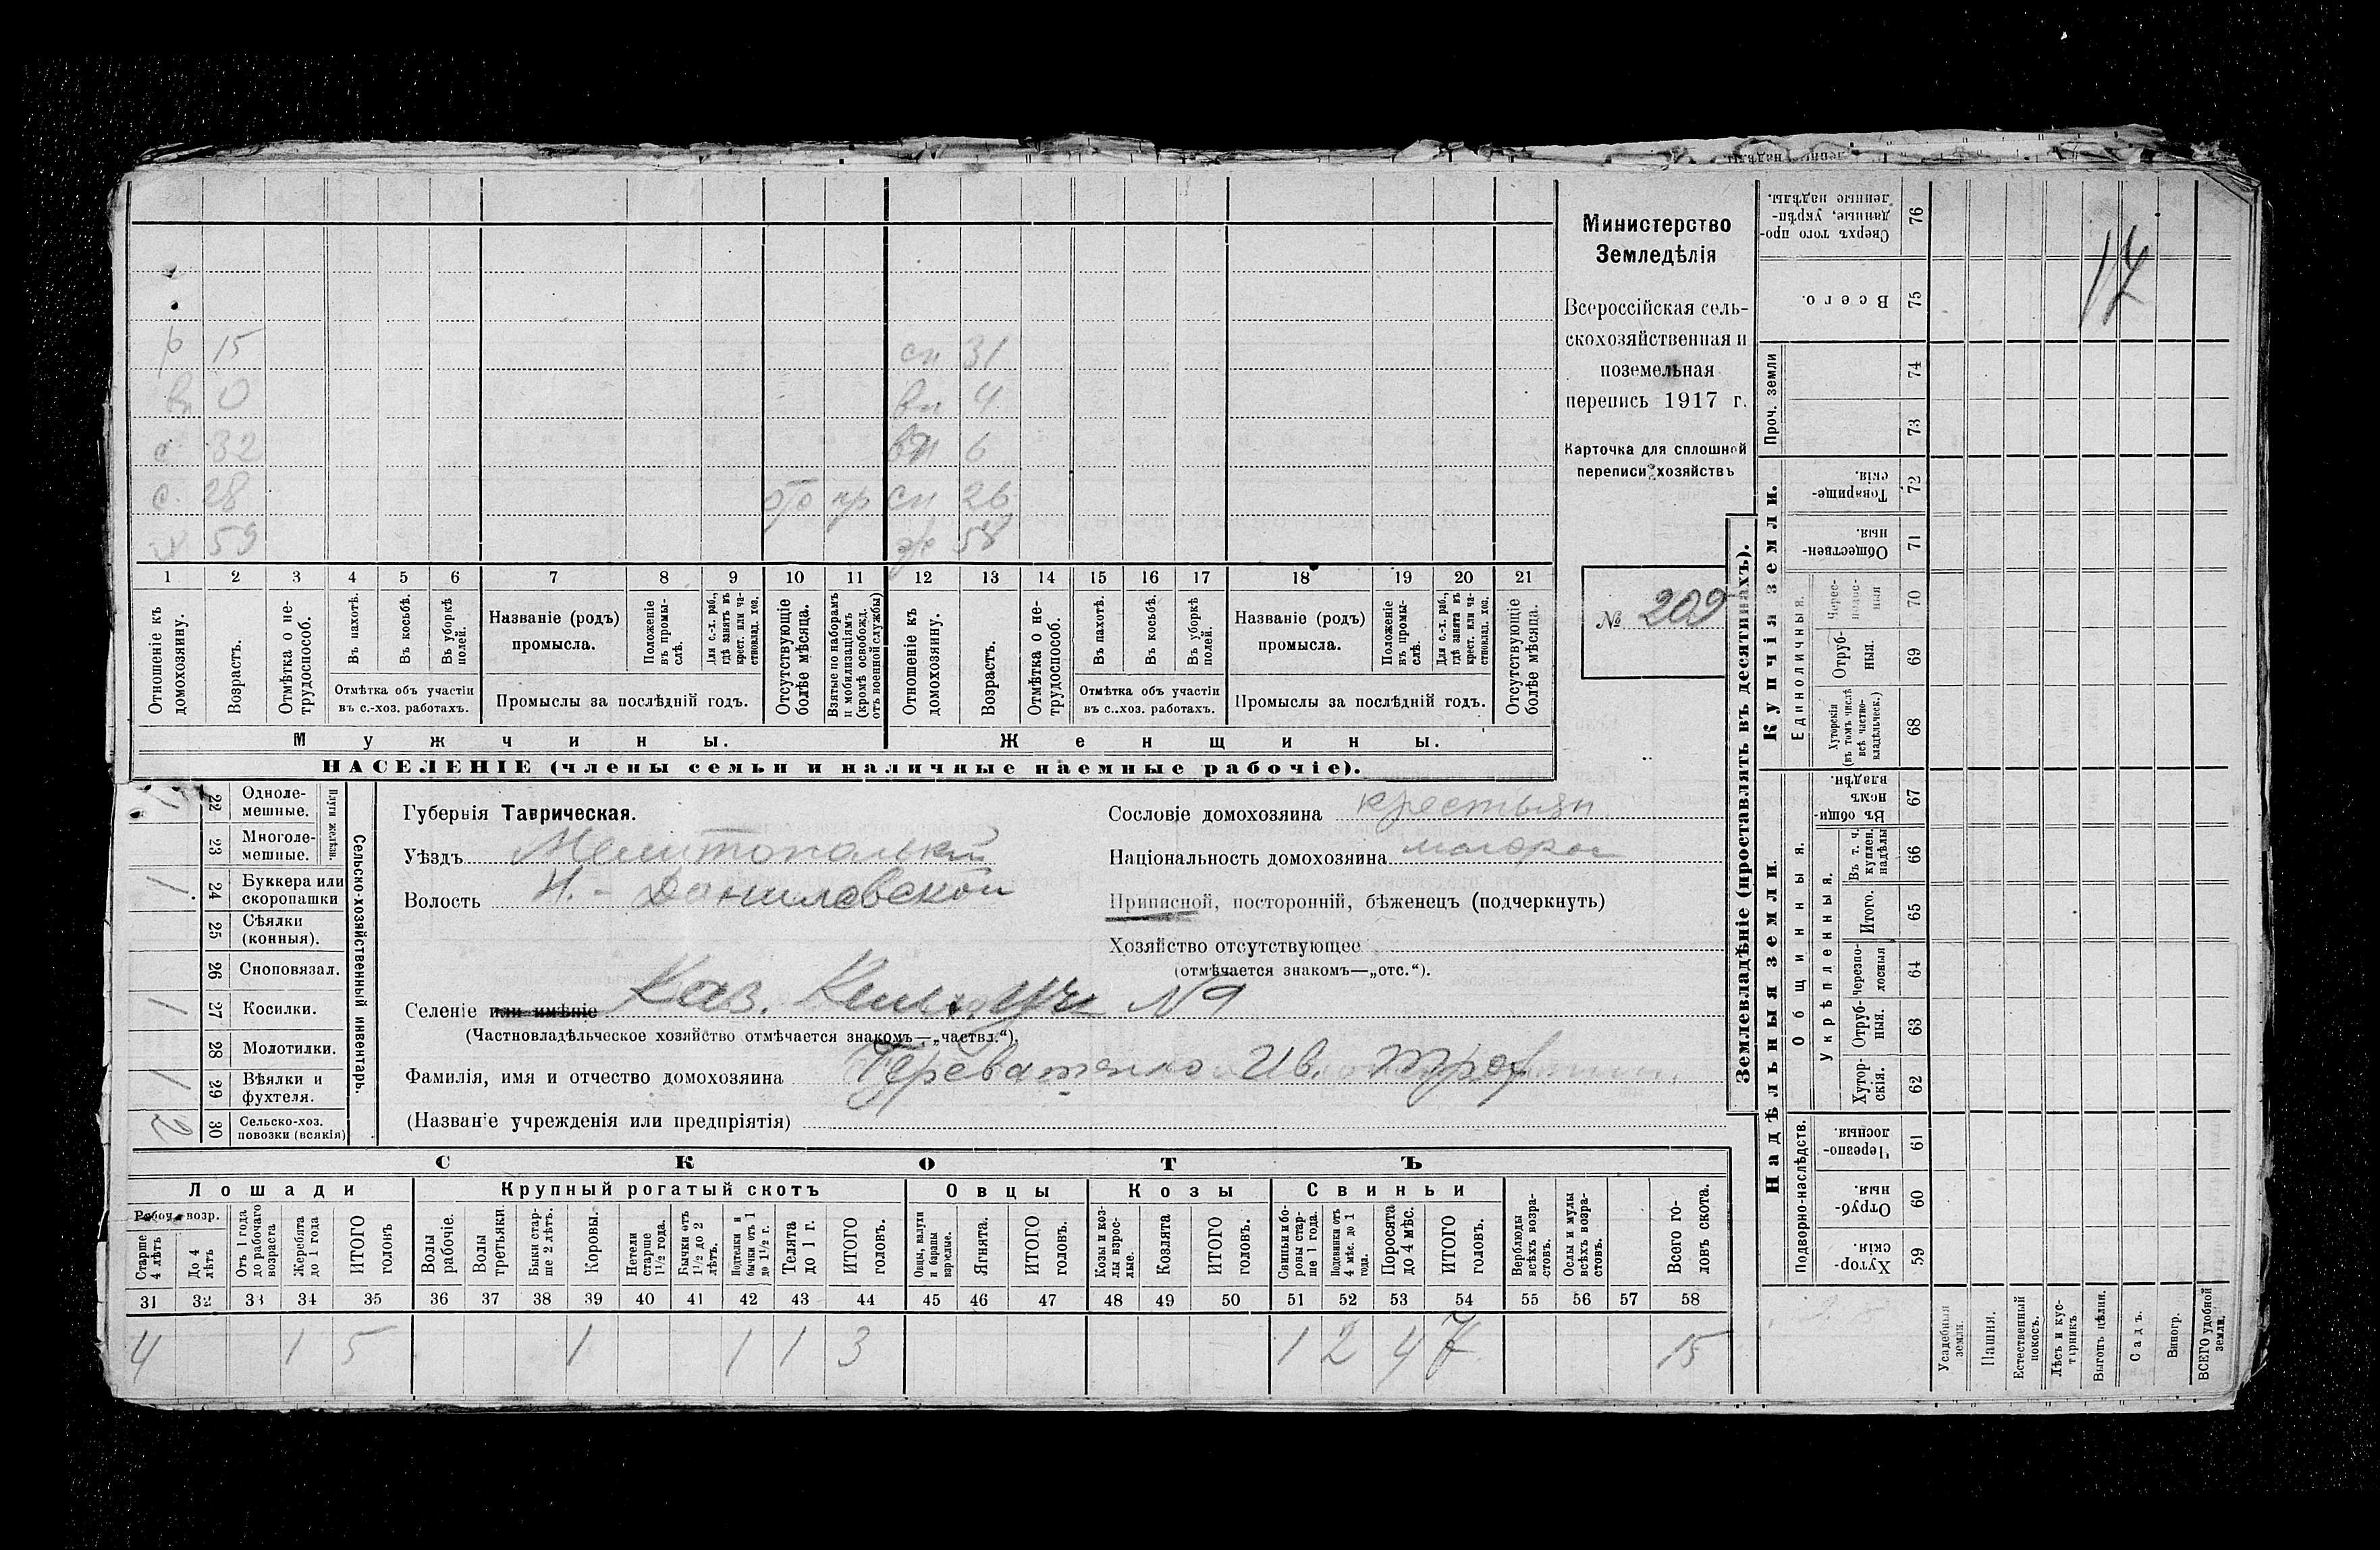 Министерство
Земледѣлія
Всероссійская сель-
скохозяйственная и
поземельная
перепись 1917 г.
Карточка для сплошной
переписи хозяйствъ
№ 209
р 15
сн 31
вн 0
вн 4
с 32
вн 6
с. 28
сн 26
х 59
ж 58
1 2 3 4 5 6 7 8 9 10 11 12 13 14 15 16 17 18 19 20 21
Отношеніе къ домохозяину.
Возрастъ.
Отмѣтка о не-трудоспособ.
Въ пахотѣ.
Въ косьбѣ.
Въ уборкѣ полей.
Отмѣтка объ участіи
въ с.-хоз. работахъ.
Названіе (родъ)
промысла.
Положеніе въ промы-слѣ.
Для с.-х. раб., гдѣ занятъ въ крест. или ча-стновлад. хоз.
Промыслы за послѣдній годъ.
Отсутствующіе болѣе мѣсяца.
Взятые по наборамъ и мобилизаціямъ (кромѣ освобожд. отъ военной службы)
Отношеніе къ домохозяину.
Возрастъ.
Отмѣтка о не-трудоспособ.
Въ пахотѣ.
Въ косьбѣ.
Въ уборкѣ полей.
Отмѣтка объ участіи
въ с.-хоз. работахъ.
Названіе (родъ)
промысла.
Положеніе въ промы-слѣ.
Для с.-х. раб., гдѣ занята въ крест. или ча-стновлад. хоз.
Промыслы за послѣдній годъ.
Отсутствующіе болѣе мѣсяца.
Мужчины.
Женщины.
НАСЕЛЕНІЕ (члены семьи и наличные наемные рабочіе).
Сельско-хозяйственный инвентарь.
Плуги желѣзн.
22 Одноле-мешные.
23 Многоле-мешные.
1 24 Буккера или скоропашки
25 Сѣялки (конныя).
26 Сноповязал.
1 27 Косилки.
28 Молотилки.
1 29 Вѣялки и фухтеля.
2 30 Сельско-хоз. повозки (всякія)
Губернія Таврическая.
Уѣздъ Мелитопольскій
Волость Н.-Даниловской
Сословіе домохозяина крестьян
Національность домохозяина малорос
Приписной, посторонній, бѣженецъ (подчеркнуть)
Хозяйство отсутствующее
(отмѣчается знакомъ—„отс.“).
Селеніе или имѣніе Каз. №
(Частновладѣльческое хозяйство отмѣчается знакомъ—„частвл.“).
Фамилія, имя и отчество домохозяина Ив. Троф
(Названіе учрежденія или предпріятія)
СКОТЪ
Лошади
Крупный рогатый скотъ
Овцы
Козы
Свиньи
Рабоч. возр.
Старше 4 лѣтъ
До 4 лѣтъ
Отъ 1 года до рабочаго возраста
Жеребята до 1 года
ИТОГО головъ
Волы рабочіе.
Волы третьяки.
Быки стар-ше 2 лѣтъ.
Коровы.
Нетели старше 1½ года.
Бычки отъ 1½ до 2 лѣтъ.
Подтелки и бычки отъ 1 до 1½ г.
Телята до 1 г.
ИТОГО головъ.
Овцы, валухи и бараны взрослые.
Ягнята.
ИТОГО головъ.
Козы и коз-лы взрос-лые.
Козлята
ИТОГО головъ.
Свиньи и бо-ровы стар-ше 1 года.
Подсвинки отъ 4 мѣс. до 1 года.
Поросята до 4 мѣс.
ИТОГО головъ.
Верблюды всѣхъ возра-стовъ.
Ослы и мулы всѣхъ возра-стовъ.
Всего го-ловъ скота.
31 32 33 34 35 36 37 38 39 40 41 42 43 44 45 46 47 48 49 50 51 52 53 54 55 56 57 58
4 1 5 1 1 1 3 1 2 4 7 15
Землевладѣніе (проставлять въ десятинахъ).
Купчія земли.
Надѣльныя земли.
Проч. земли
Единоличныя.
Общинныя.
Укрѣпленныя.
Подворно-наслѣдств.
Сверхъ того про-данные, укрѣп-ленные надѣлы. 76
Всего. 75
74
73
Товарище-скія. 72
Обществен-ныя. 71
Черес-полос-ныя 70
Отруб-ныя. 69
Хуторскія (въ томъ числѣ всѣ частно-владѣльческ.) 68
Въ общи-номъ владѣн. 67
Въ т. ч. куплен. надѣлы 66
Итого. 65
Черезпо-лосныя 64
Отруб-ныя. 63
Хутор-скія. 62
Черезпо-лосныя. 61
Отруб-ныя. 60
Хутор-скія. 59
Усадебныя земли.
Пашня.
Естественный покосъ.
Лѣсъ и кус-тарникъ
Выгонъ цѣлин.
Садъ.
Виногр.
ВСЕГО удобной земли.